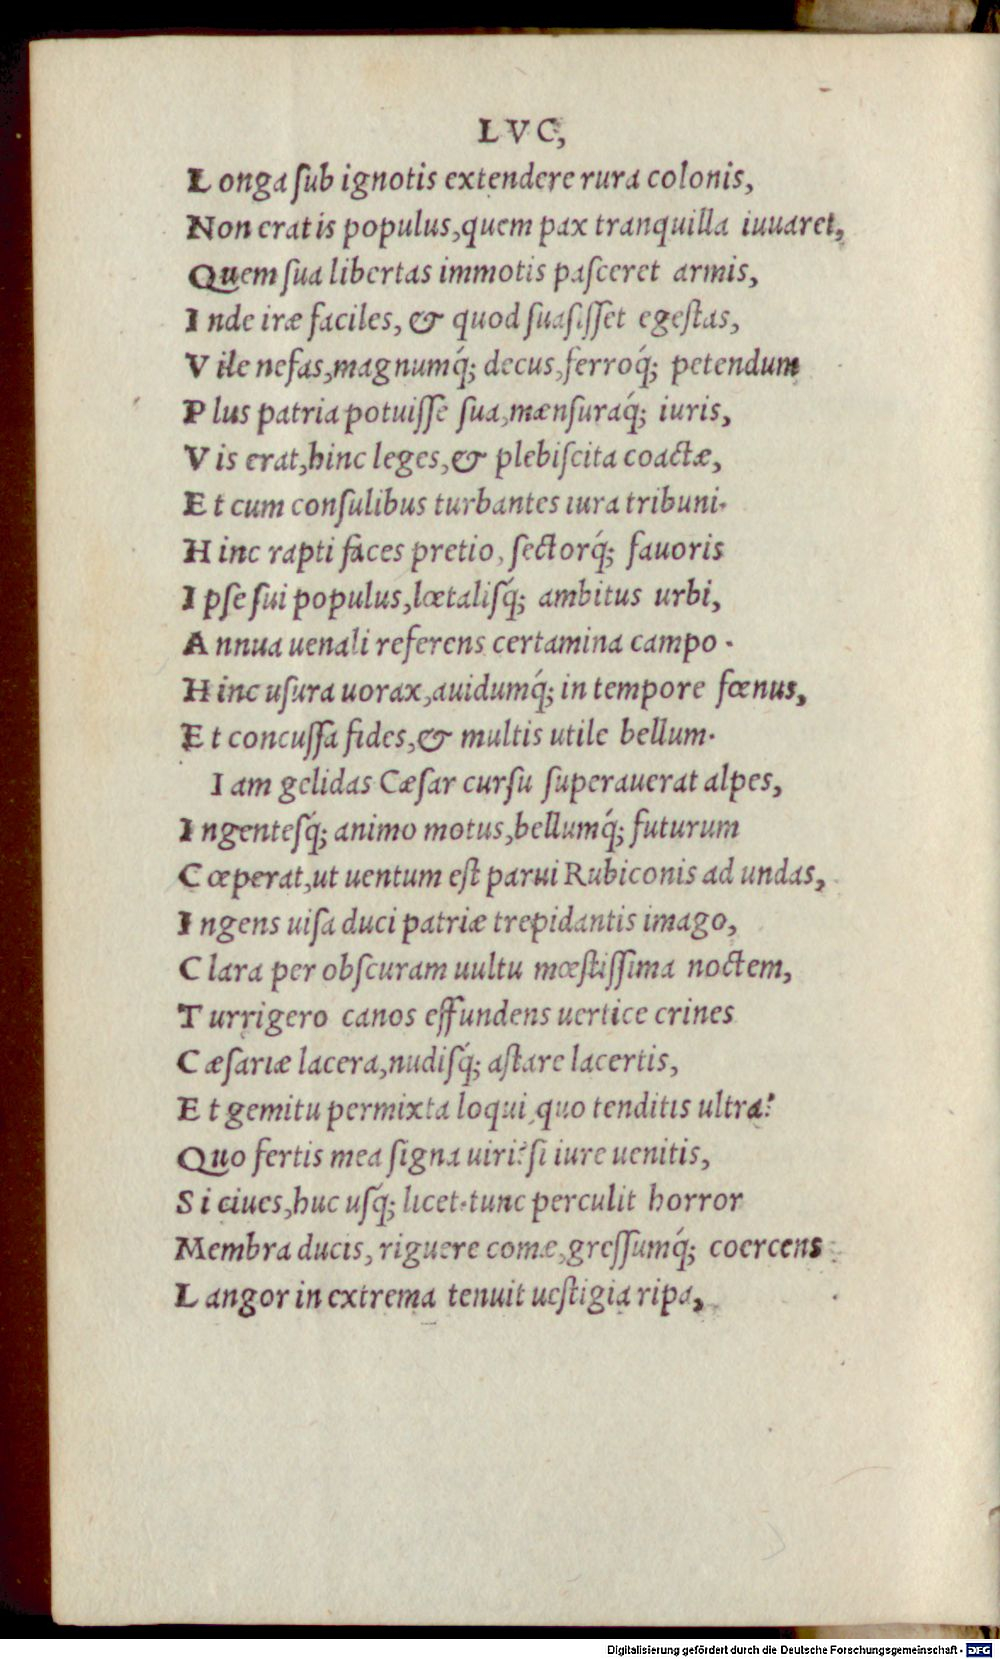 LVC,
Longa ſub ignotis extendere rura colonis,
Non erat is populus, quem pax tranquilla iuuaret,
Quem ſua libertas immotis paſceret armis,
Inde iræ faciles, & quod ſuaſiſſet egeſtas,
Vile nefas, magnumq́; decus, ferroq́; petendum
Plus patria potuiſſe ſua, mænſuraq́; iuris,
Vis erat, hinc leges, & plebiſcita coactæ,
Et cum conſulibus turbantes iura tribuni.
Hinc rapti faces pretio, ſectorq́; fauoris
Ipſe ſui populus, lœtaliſq́; ambitus urbi,
Annua uenali referens certamina campo.
Hinc uſura uorax, auidumq́; in tempore fœnus,
Et concuſſa fides, & multis utile bellum.
Iam gelidas Cæſar curſu ſuperauerat alpes,
Ingenteſq́; animo motus, bellumq́; futurum
Cœperat, ut uentum eſt parui Rubiconis ad undas,
Ingens uiſa duci patriæ trepidantis imago,
Clara per obſcuram uultu mœſtiſſima noctem,
Turrigero canos effundens uertice crines
Cæſariæ lacera, nudiſq́; aſtare lacertis,
Et gemitu permixta loqui, quo tenditis ultra?
Quo fertis mea ſigna uiri? ſi iure uenitis,
Si ciues, huc uſq́; licet. tunc perculit horror
Membra ducis, riguere comæ, greſſumq́; coercens
Langor in extrema tenuit ueſtigia ripa,
Digitalisierung gefördert durch die Deutsche Forschungsgemeinschaft - DFG